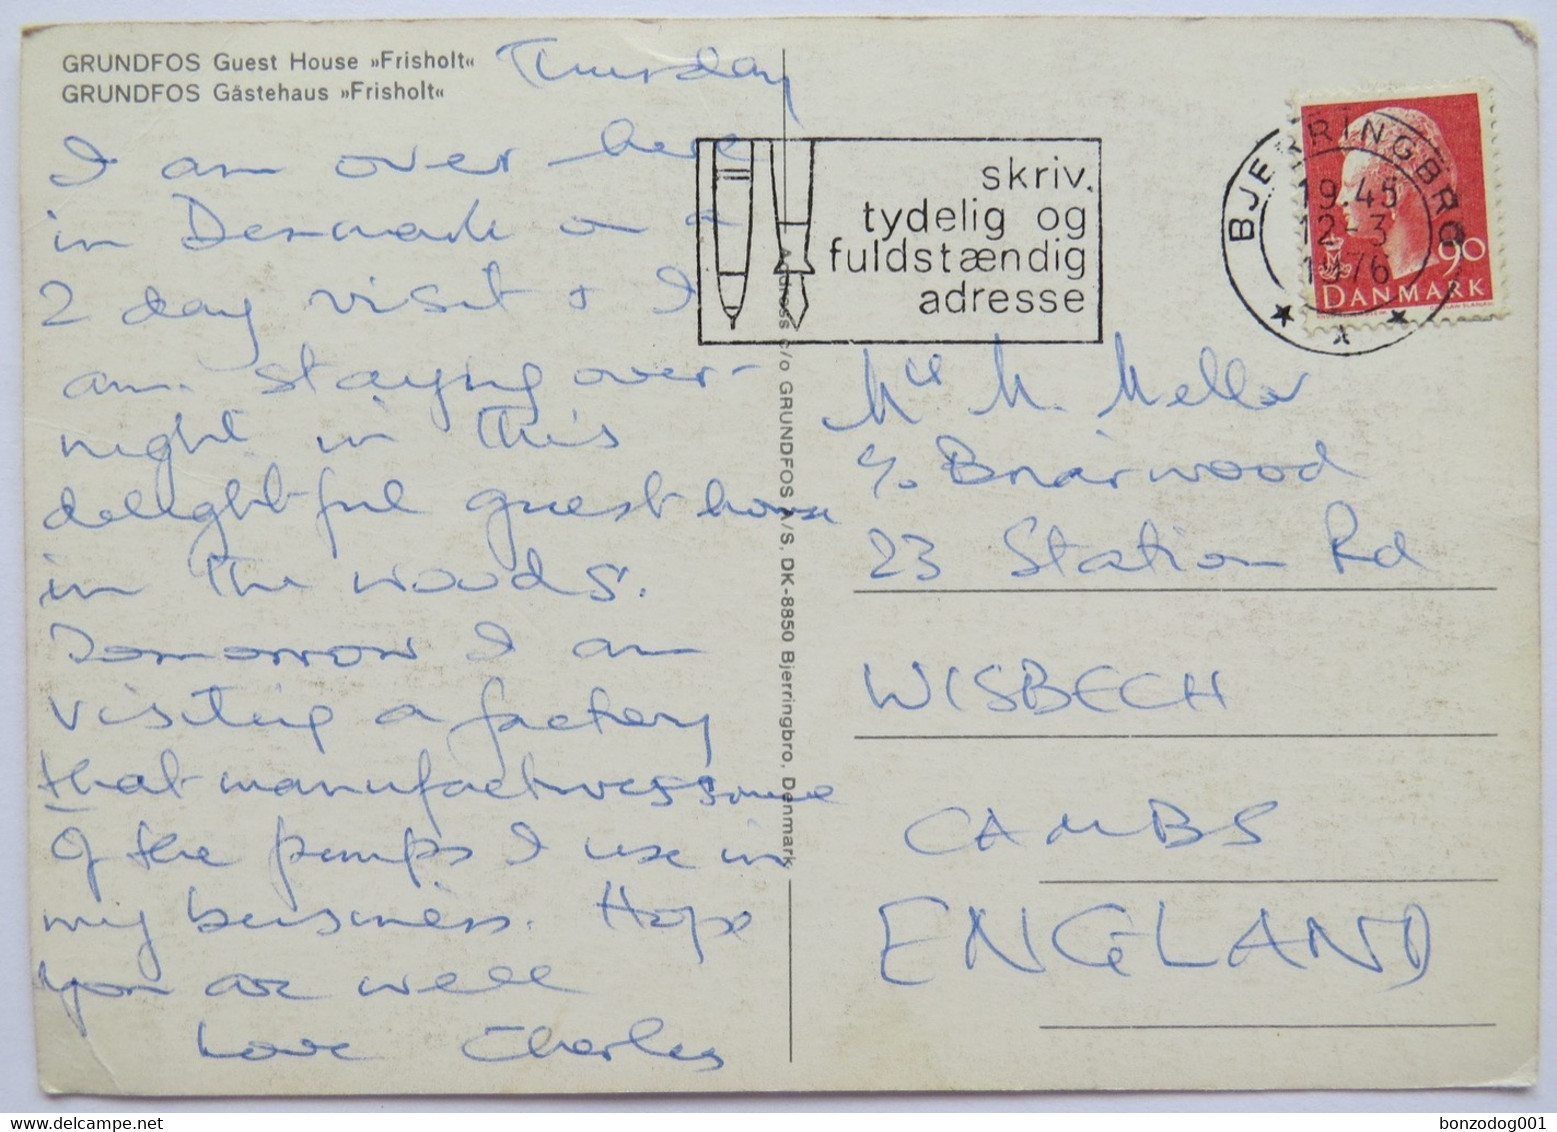 GRUNDFOS Guest House »Frisholt«
GRUNDFOS Gästehaus »Frisholt«
Thursday
I am over here
in Denmark on a
2 day visit & I
am staying over-
night in this
delightful guest house
in the woods.
Tomorrow I am
visiting a factory
that manufactures some
of the pumps I use in
my business. Hope
you are well
Love Charles
Adress c/o GRUNDFOS A/S, DK-8850 Bjerringbro, Denmark
skriv
tydelig og
fuldstændig
adresse
BJERRINGBRO
19.45
12-3
1976
90
DANMARK
M. Mellor
c/o Briarwood
23 Station Rd
WISBECH
CAMBS
ENGLAND
bonzodog001